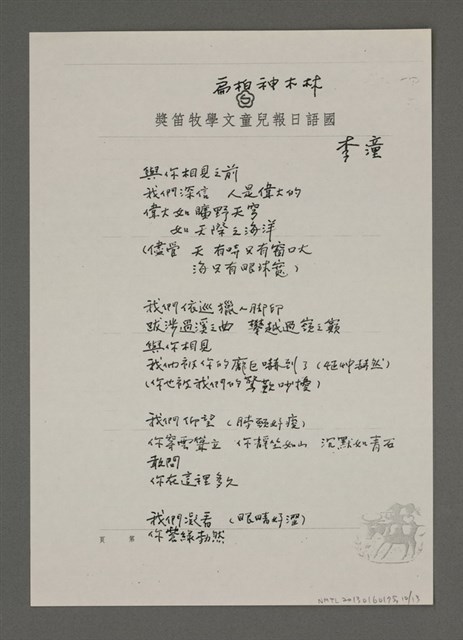 扁柏神木林
獎笛牧學文童兒報日語國
李潼
與你相見之前
我們深信 人是偉大的
偉大如曠野天穹
如天際之海洋
(儘管 天有時只有窗口大
海只有眼珠寬)
我們依巡獵人腳印
跋涉過溪之曲 攀越過嶺之巔
與你相見
我們被你的龐巨嚇到了(怔忡赫然)
(你也被我們的驚歎吵擾)
我們仰望 (脖頸好痠)
你穿雲聳立 你靜坐如山 沉默如青石
敢問
你在這裡多久
我們凝看 (眼睛好澀)
你蒼綠勃然
頁 第
NMTL20130164195, 10/13